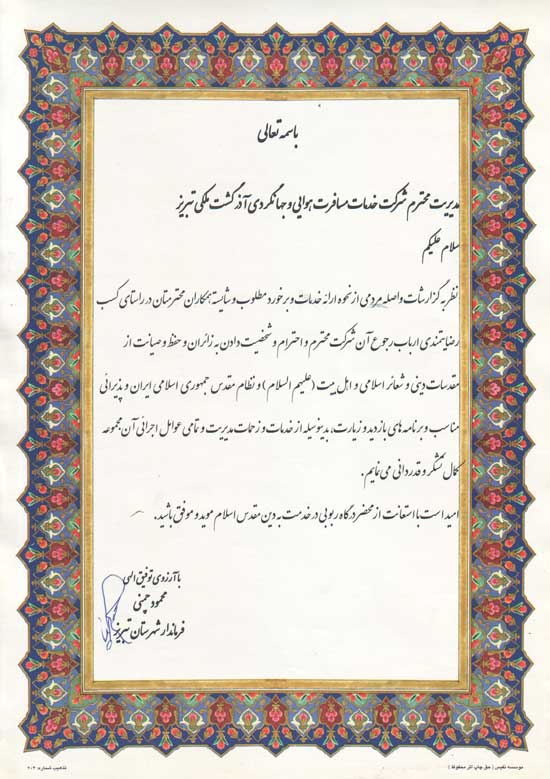 باسمه تعالی
مدیریت محترم شرکت خدمات مسافرت هوایی و جهانگردی آذر گشت ملکی تبریز
سلام علیکم
نظر به گزارشات واصله مردمی از نحوه ارائه خدمات و برخورد مطلوب و شایسته همکاران محترمتان در راستای کسب
رضایتمندی ارباب رجوع آن شرکت محترم و احترام و شخصیت دادن به زائران و حفظ و صیانت از
مقدسات دینی و شعائر اسلامی و اهل بیت (علیهم السلام) و نظام مقدس جمهوری اسلامی ایران و پذیرائی
مناسب و برنامه های بازدید و زیارت، بدینوسیله از خدمات و زحمات مدیریت و تمامی عوامل اجرائی آن مجموعه
کمال تشکر و قدردانی می نمایم.
امید است با استعانت از محضر درگاه ربوبی در خدمت به دین مقدس اسلام موید و موفق باشید.
با آرزوی توفیق الهی
محمود چمنی
فرماندار شهرستان تبریز
موسسه نفیس (حق چاپ اثر محفوظ)
تذهیب شماره: ۲۰۲